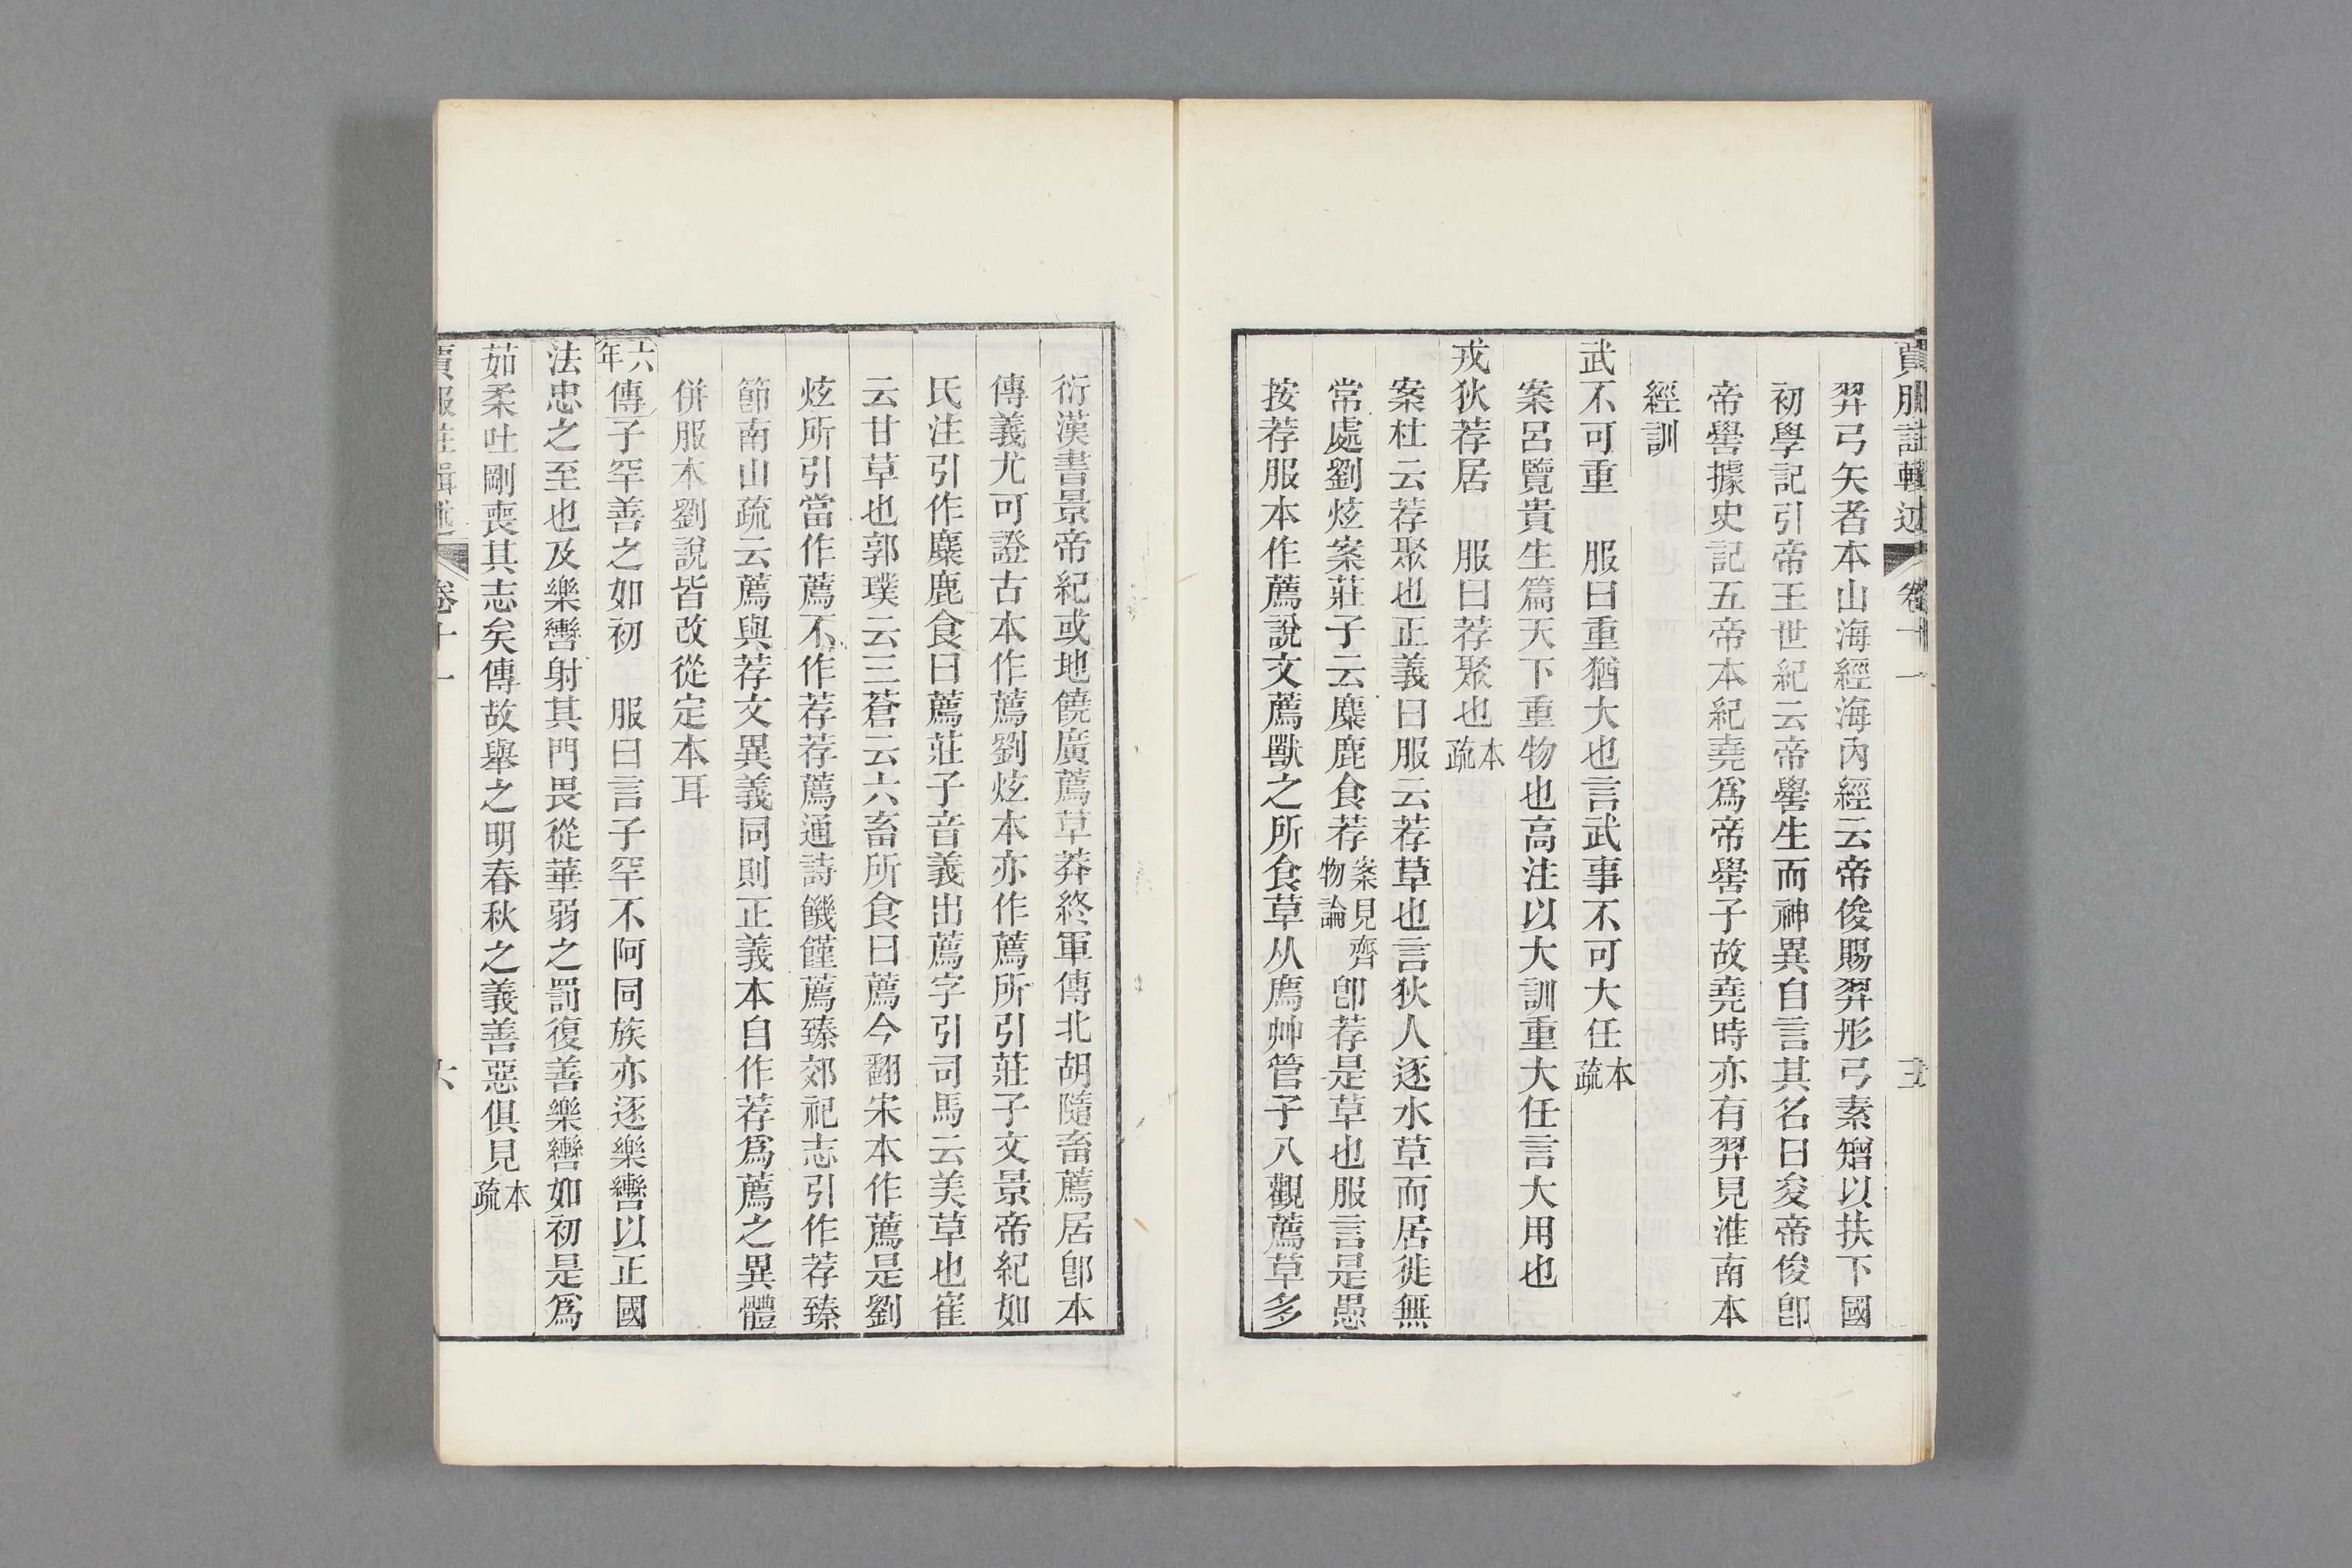 賈服註輯述 卷十一 五
羿弓矢者本山海經海內經云帝俊賜羿彤弓素矰以扶下國
初學記引帝王世紀云帝嚳生而神異自言其名曰夋帝俊卽
帝嚳據史記五帝本紀堯爲帝嚳子故堯時亦有羿見淮南本
經訓
武不可重 服曰重猶大也言武事不可大任本疏
案呂覽貴生篇天下重物也高注以大訓重大任言大用也
戎狄荐居 服曰荐聚也本疏
案杜云荐聚也正義曰服云荐草也言狄人逐水草而居徙無
常處劉炫案莊子云麋鹿食荐案見齊物論卽荐是草也服言是愚
按荐服本作薦說文薦獸之所食草从廌艸管子八觀薦草多
衍漢書景帝紀或地饒廣薦草莽終軍傳北胡隨畜薦居卽本
傳義尤可證古本作薦劉炫本亦作薦所引莊子文景帝紀如
氏注引作麋鹿食曰薦莊子音義出薦字引司馬云美草也崔
云甘草也郭璞云三蒼云六畜所食曰薦今翻宋本作薦是劉
炫所引當作薦不作荐荐薦通詩饑饉薦臻郊祀志引作荐臻
節南山疏云薦與荐文異義同則正義本自作荐爲薦之異體
併服本劉說皆改從定本耳
六年傳子罕善之如初 服曰言子罕不阿同族亦逐樂轡以正國
法忠之至也及樂轡射其門畏從華弱之罰復善樂轡如初是爲
茹柔吐剛喪其志矣傳故舉之明春秋之義善惡俱見本疏
賈服註輯述 卷十一 六